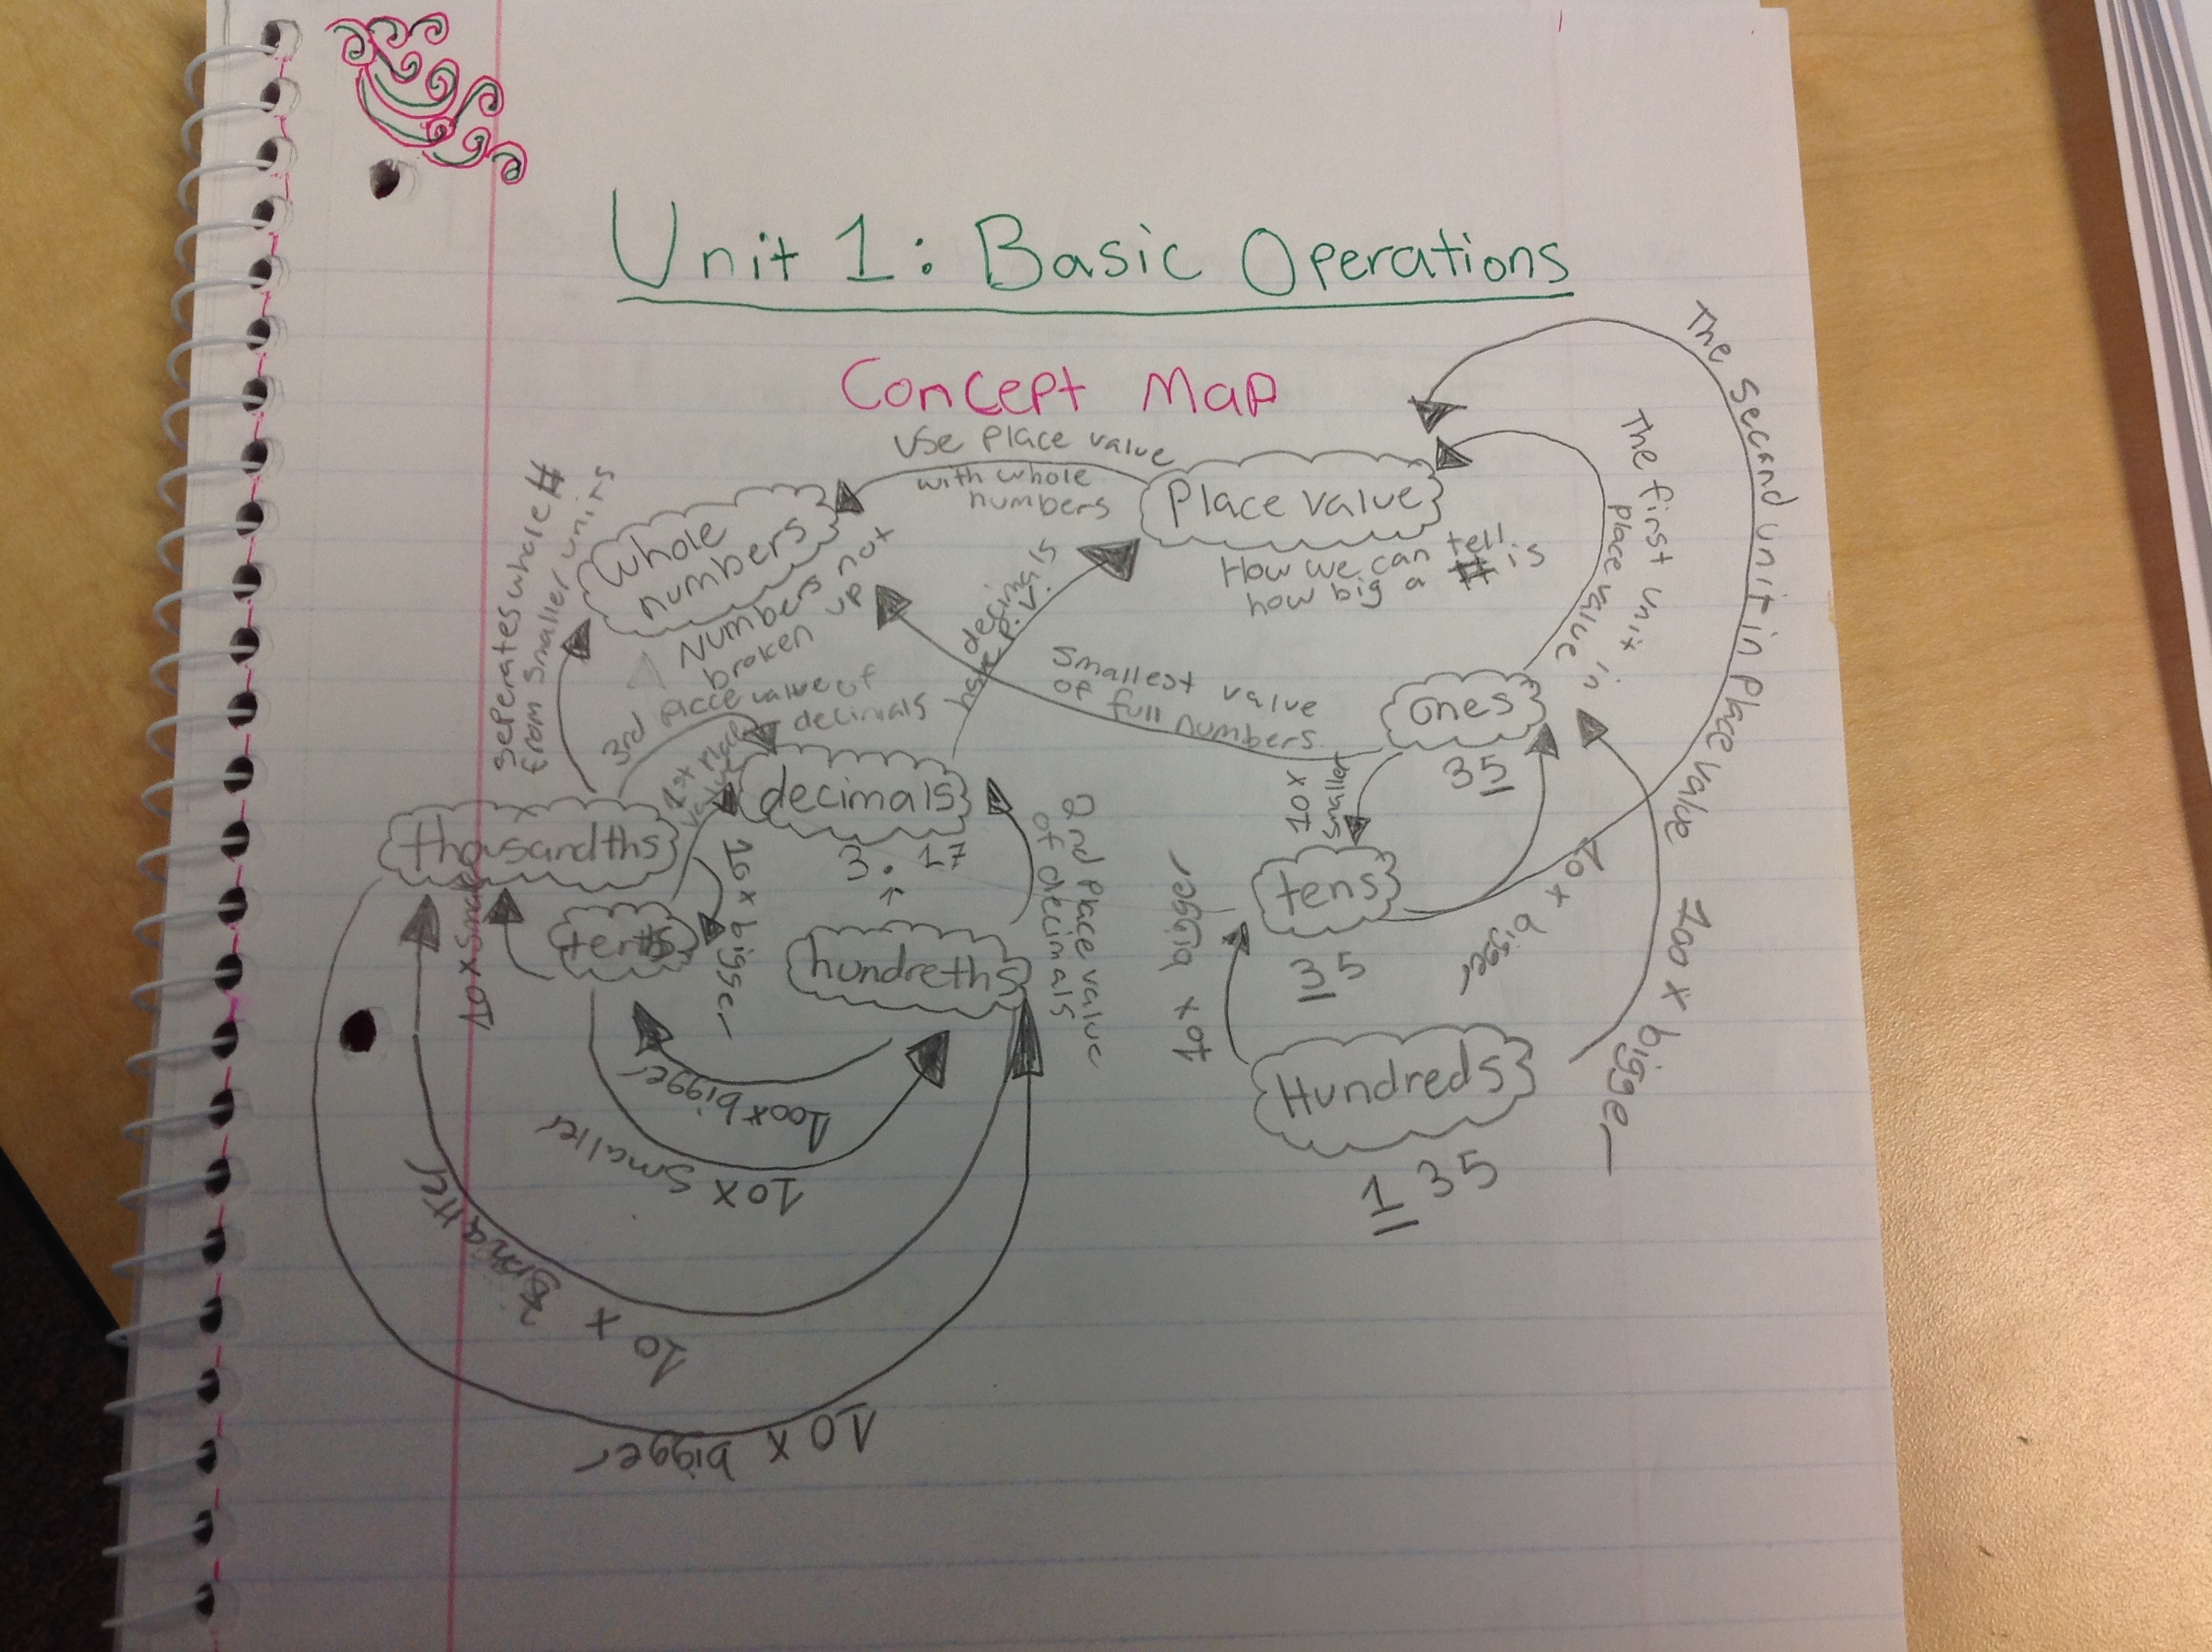 Unit 1: Basic Operations
Concept Map
Use place value
with whole
numbers
Place value
How we can tell
how big a # is
whole
numbers
Numbers not
broken up
seperates whole #
from smaller units
decimals
have p.v.
Smallest value
of full numbers
The first unit in
place value
The second unit in place value
ones
35
10x
smaller
tens
35
10 x bigger
10 x bigger
100 x bigger
Hundreds
135
3rd place value of
decimals
1st place
value
decimals
3.17
2nd place value
of decimals
thousandths
10 x bigger
tenths
hundreths
100x bigger
10x smaller
10 x smaller
10 x bigger